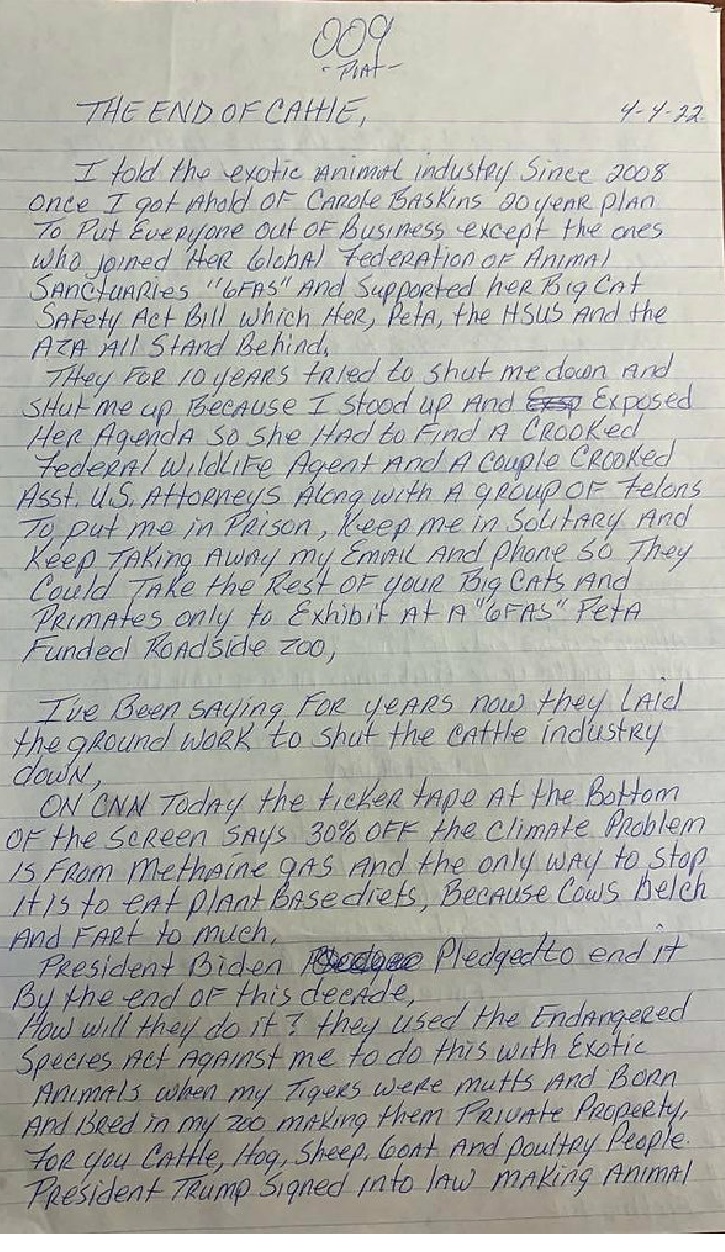 009
- PIAT -
THE END OF CATTLE, 4-4-22
I told the exotic ANIMAL industry Since 2008
once I got Ahold OF CAROLE BASKINS 20 year plAN
To Put Everyone out OF Business except the ones
who joined HER GlobAl Federation OF ANIMAL
SANCtuARies "GFAS" AND Supported her Big CAt
SAFety Act Bill which Her, PetA, the HSUS ANd the
AZA All StAND Behind.
THey FOR 10 yeARS tried to shut me down AND
SHut me up BecAuse I stood up AND Exposed
Her AgendA so she HAd to Find A CROOKed
FederAl WildLiFe Agent AND A couple CROOKed
Asst. U.S. Attorneys Along with A gROUP OF Felons
To put me in PRison, Keep me in SolitARy AND
Keep TAKING AWAY my EMAil AND phone So They
Could TAKe the Rest OF youR Big CAts AND
PRiMAtes only to Exhibit At A "GFAS" PetA
Funded RoAdside Zoo,
I've Been SAying FOR yeARS now they LAid
the gROUND WORK to shut the CAttle industry
down,
ON CNN TodAy the ticker tApe At the Bottom
OF the SCReen SAys 30% OFF the CliMAte PRoblem
is FROM MethAine gAS AND the only WAy to Stop
it is to eAt plAnt BAse diets, BecAuse Cows Belch
AND FARt to Much,
President Biden Pledged to end it
By the end OF this decAde,
How will they do it? they used the EndAngered
Species Act AgAinst me to do this with Exotic
ANiMAls when my Tigers were mutts AND BORN
AND BRed in my Zoo mAKing them PRivAte PRoperty,
FOR you CAttle, Hog, Sheep, GoAt AND poultRy People.
PResident TRump Signed into lAw MAKing ANIMAL